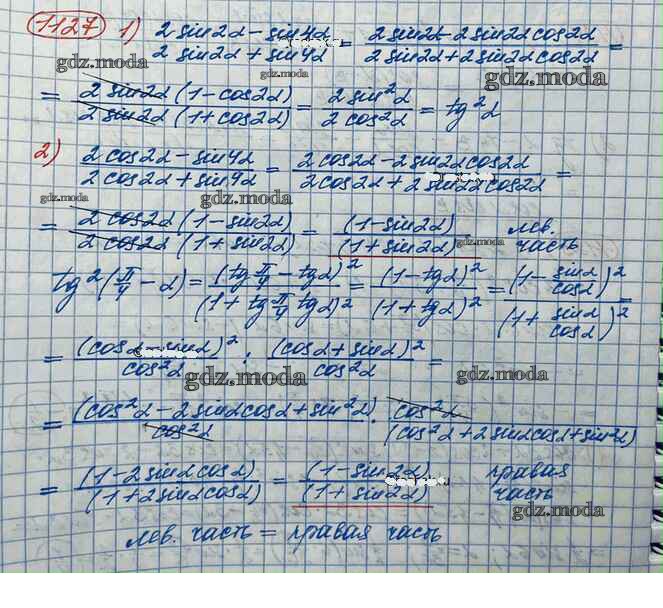 1127 1) (2 sin2α - sin4α)/(2 sin2α + sin4α) = (2 sin2α - 2 sin2α cos2α)/(2 sin2α + 2 sin2α cos2α) =
gdz.moda gdz.moda gdz.moda
= (2 sin2α (1 - cos2α))/(2 sin2α (1 + cos2α)) = (2 sin²α)/(2 cos²α) = tg²α
2) (2 cos2α - sin4α)/(2 cos2α + sin4α) = (2 cos2α - 2 sin2α cos2α)/(2 cos2α + 2 sin2α cos2α) =
gdz.moda gdz.moda
= (2 cos2α (1 - sin2α))/(2 cos2α (1 + sin2α)) = (1 - sin2α)/(1 + sin2α) - лев. часть
gdz.moda
tg²(π/4 - α) = (tg π/4 - tgα)²/(1 + tg π/4 tgα)² = (1 - tgα)²/(1 + tgα)² = (1 - sinα/cosα)²/(1 + sinα/cosα)² =
= (cosα - sinα)²/cos²α : (cosα + sinα)²/cos²α =
gdz.moda gdz.moda
= (cos²α - 2 sinα cosα + sin²α)/cos²α · cos²α/(cos²α + 2 sinα cosα + sin²α)
= (1 - 2 sinα cosα)/(1 + 2 sinα cosα) = (1 - sin2α)/(1 + sin2α) правая часть
gdz.moda
лев. часть = правая часть